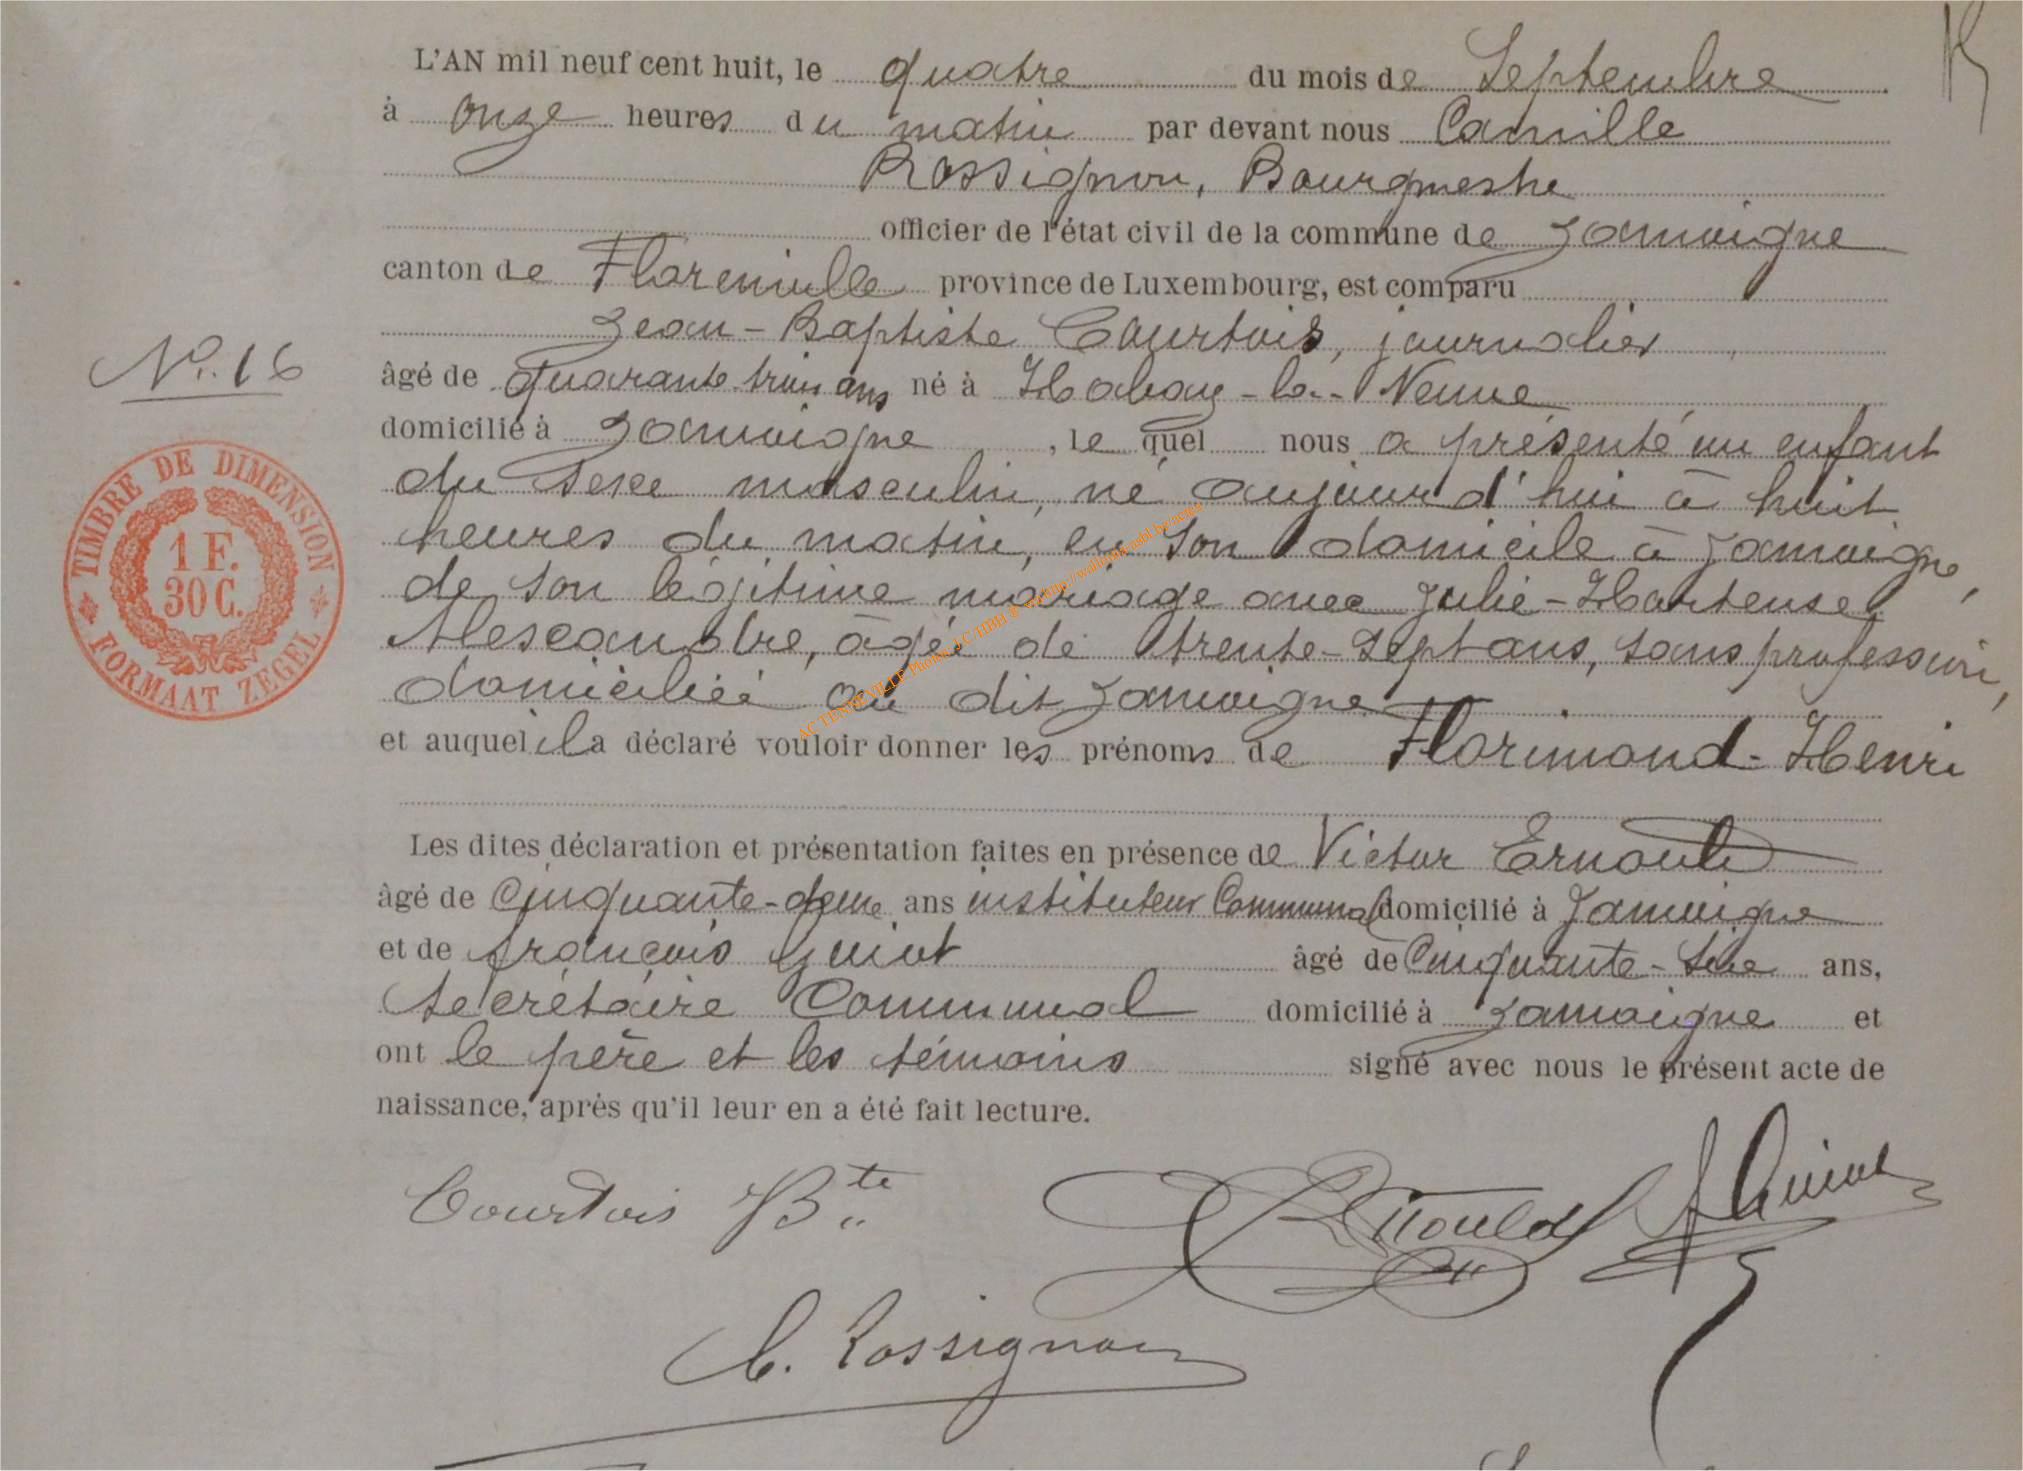 L'AN mil neuf cent huit, le quatre du mois de Septembre
à onze heures du matin par devant nous Camille
Rossignon, Bourgmestre
officier de l'état civil de la commune de Jamoigne
canton de Florenville province de Luxembourg, est comparu
Jean-Baptiste Courtois, journalier
âgé de quarante trois ans né à Habay-la-Neuve
domicilié à Jamoigne, lequel nous a présenté un enfant
No. 16
du sexe masculin, né aujourd'hui à huit
heures du matin, en son domicile à Jamoigne,
de son légitime mariage avec Julie-Hortense
Alexandre, âgée de trente-sept ans, sans profession,
domiciliée au dit Jamoigne
et auquel il a déclaré vouloir donner les prénoms de Florimond-Henri
TIMBRE DE DIMENSION
1 F.
30 C.
FORMAAT ZEGEL
Les dites déclaration et présentation faites en présence de Victor Ernould
âgé de cinquante-deux ans instituteur Communal domicilié à Jamoigne
et de François Guiot âgé de cinquante-six ans,
secrétaire Communal domicilié à Jamoigne et
ont le père et les témoins signé avec nous le présent acte de
naissance, après qu'il leur en a été fait lecture.
Courtois JBte
Ernould
F Guiot
C. Rossignon